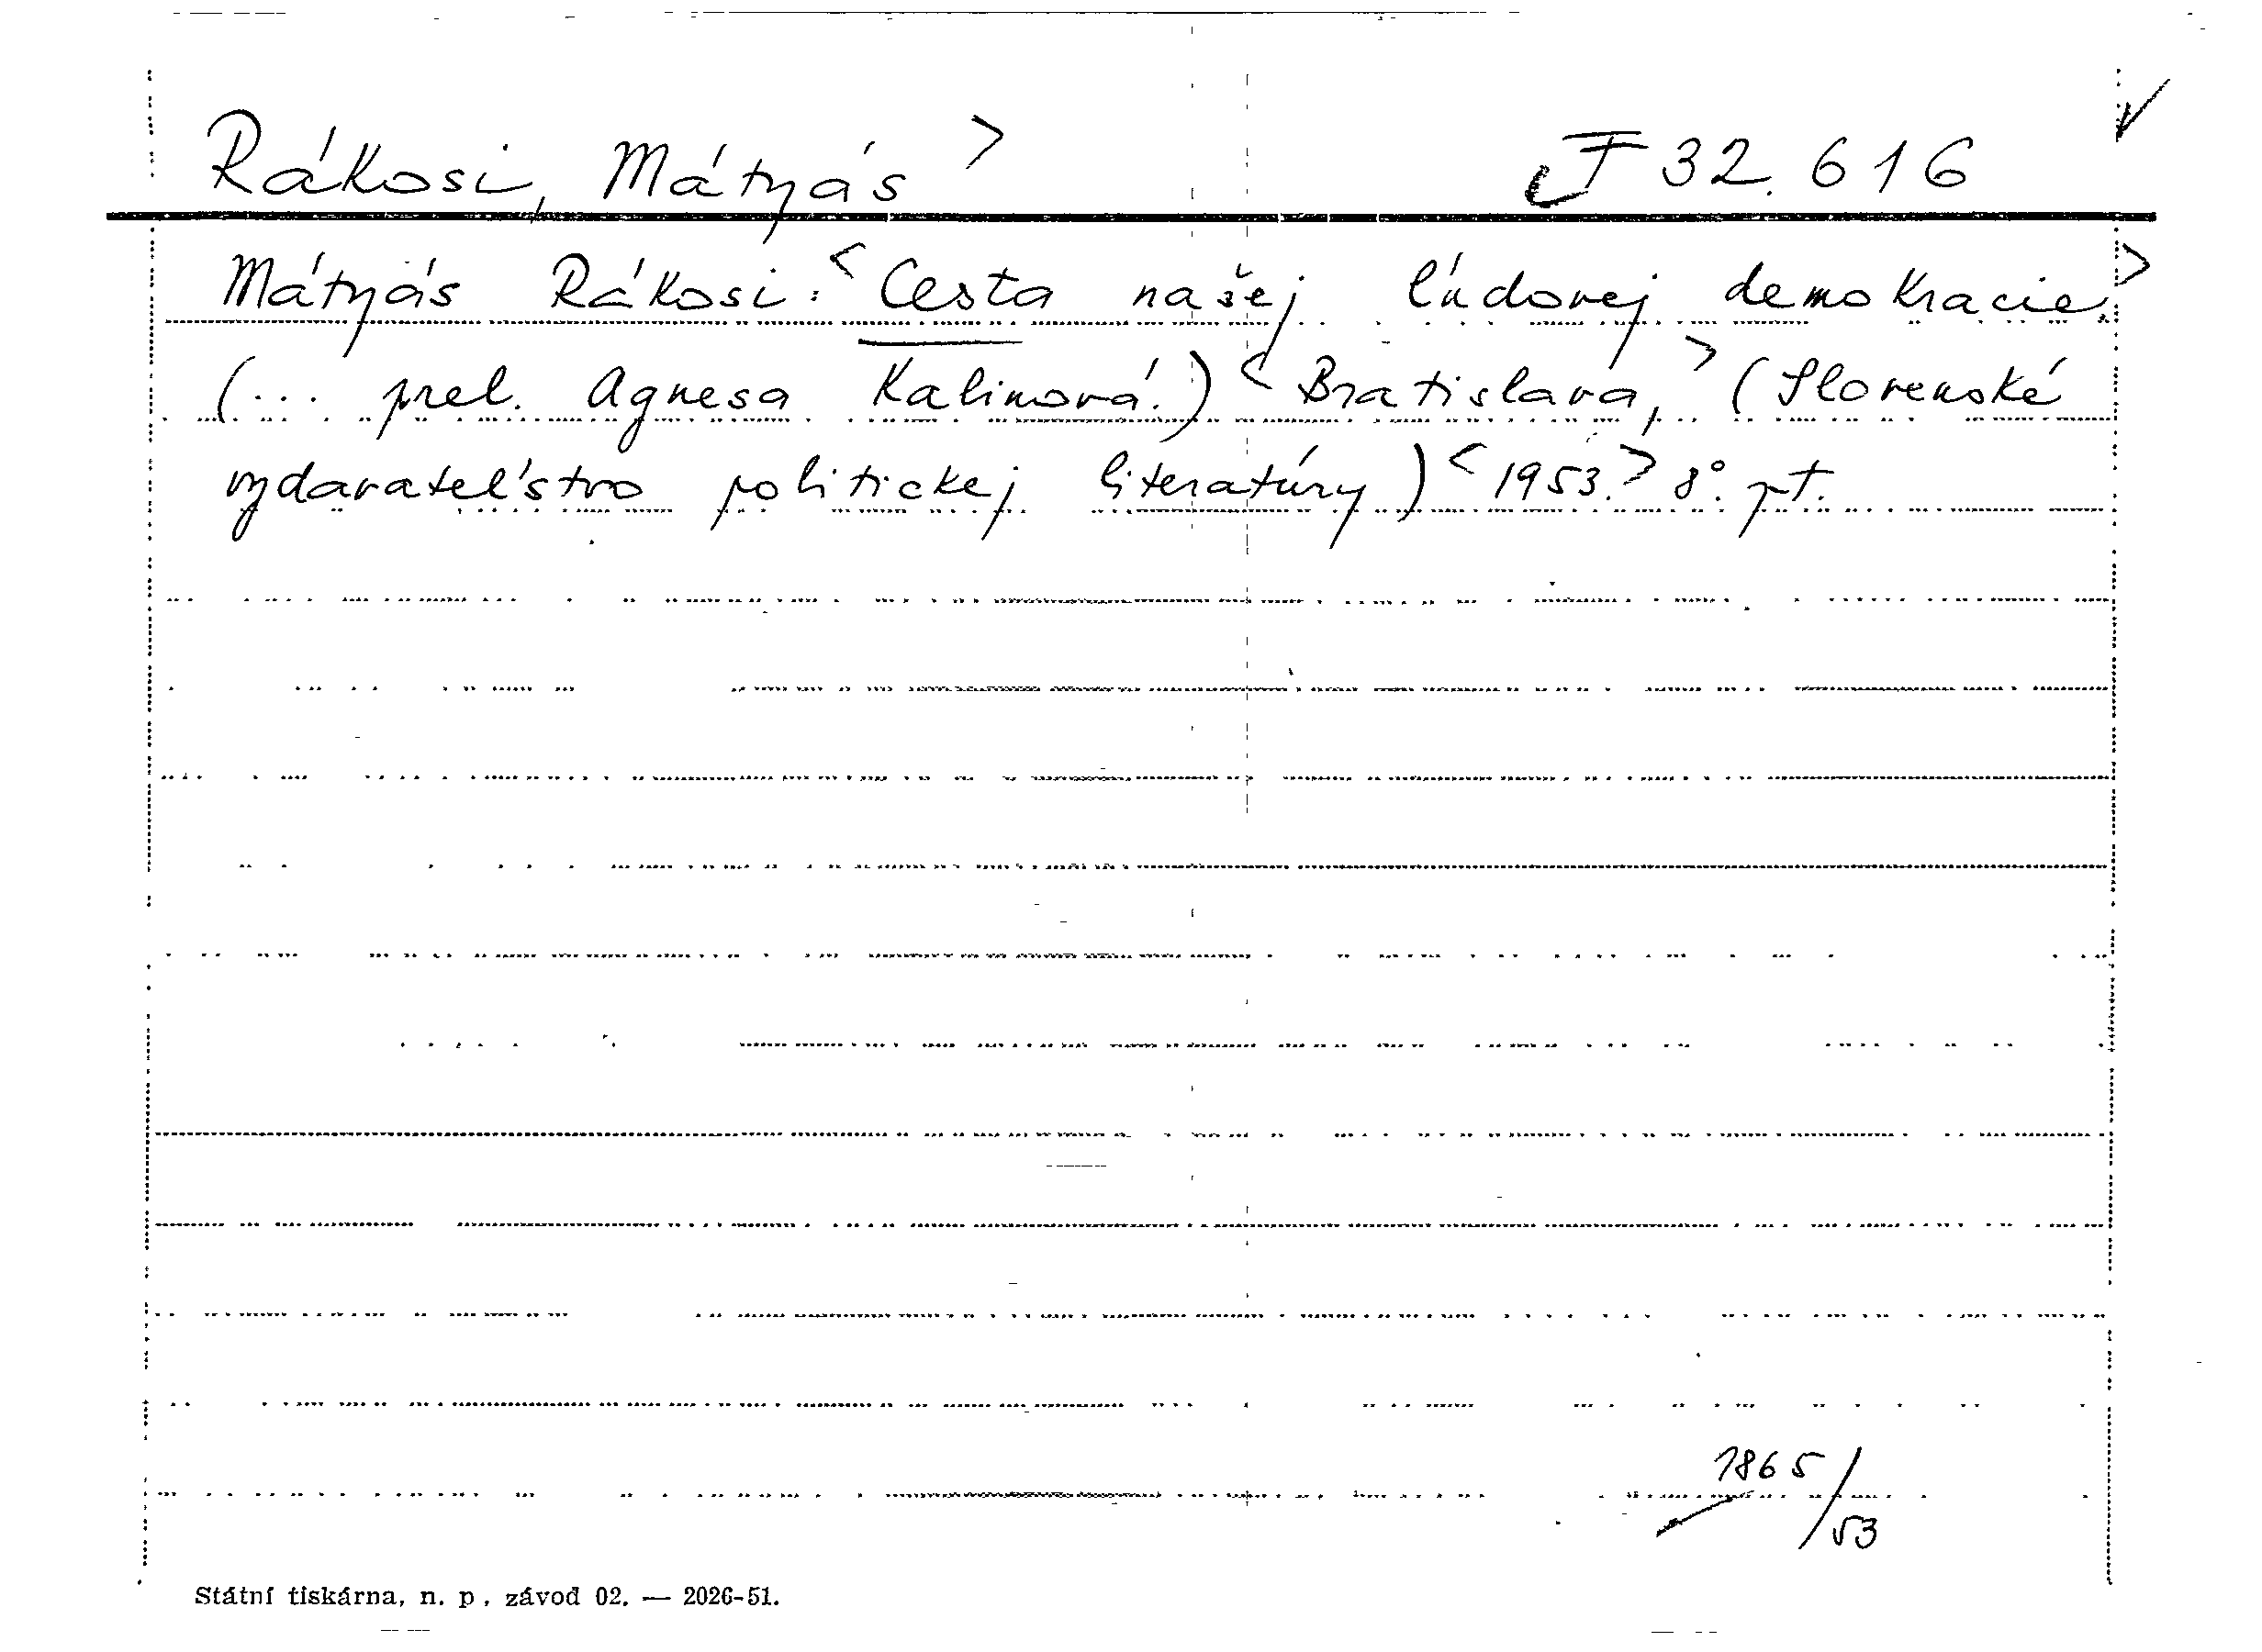 Rákosi, Mátyás > J 32.616
Mátyás Rákosi: <Cesta našej ľudovej demokracie.>
(... prel. Agnesa Kalinová.) <Bratislava,> (Slovenské
vydavateľstvo politickej literatúry) <1953.> 8°. pt.
1865/53
Státní tiskárna, n. p., závod 02. — 2026-51.